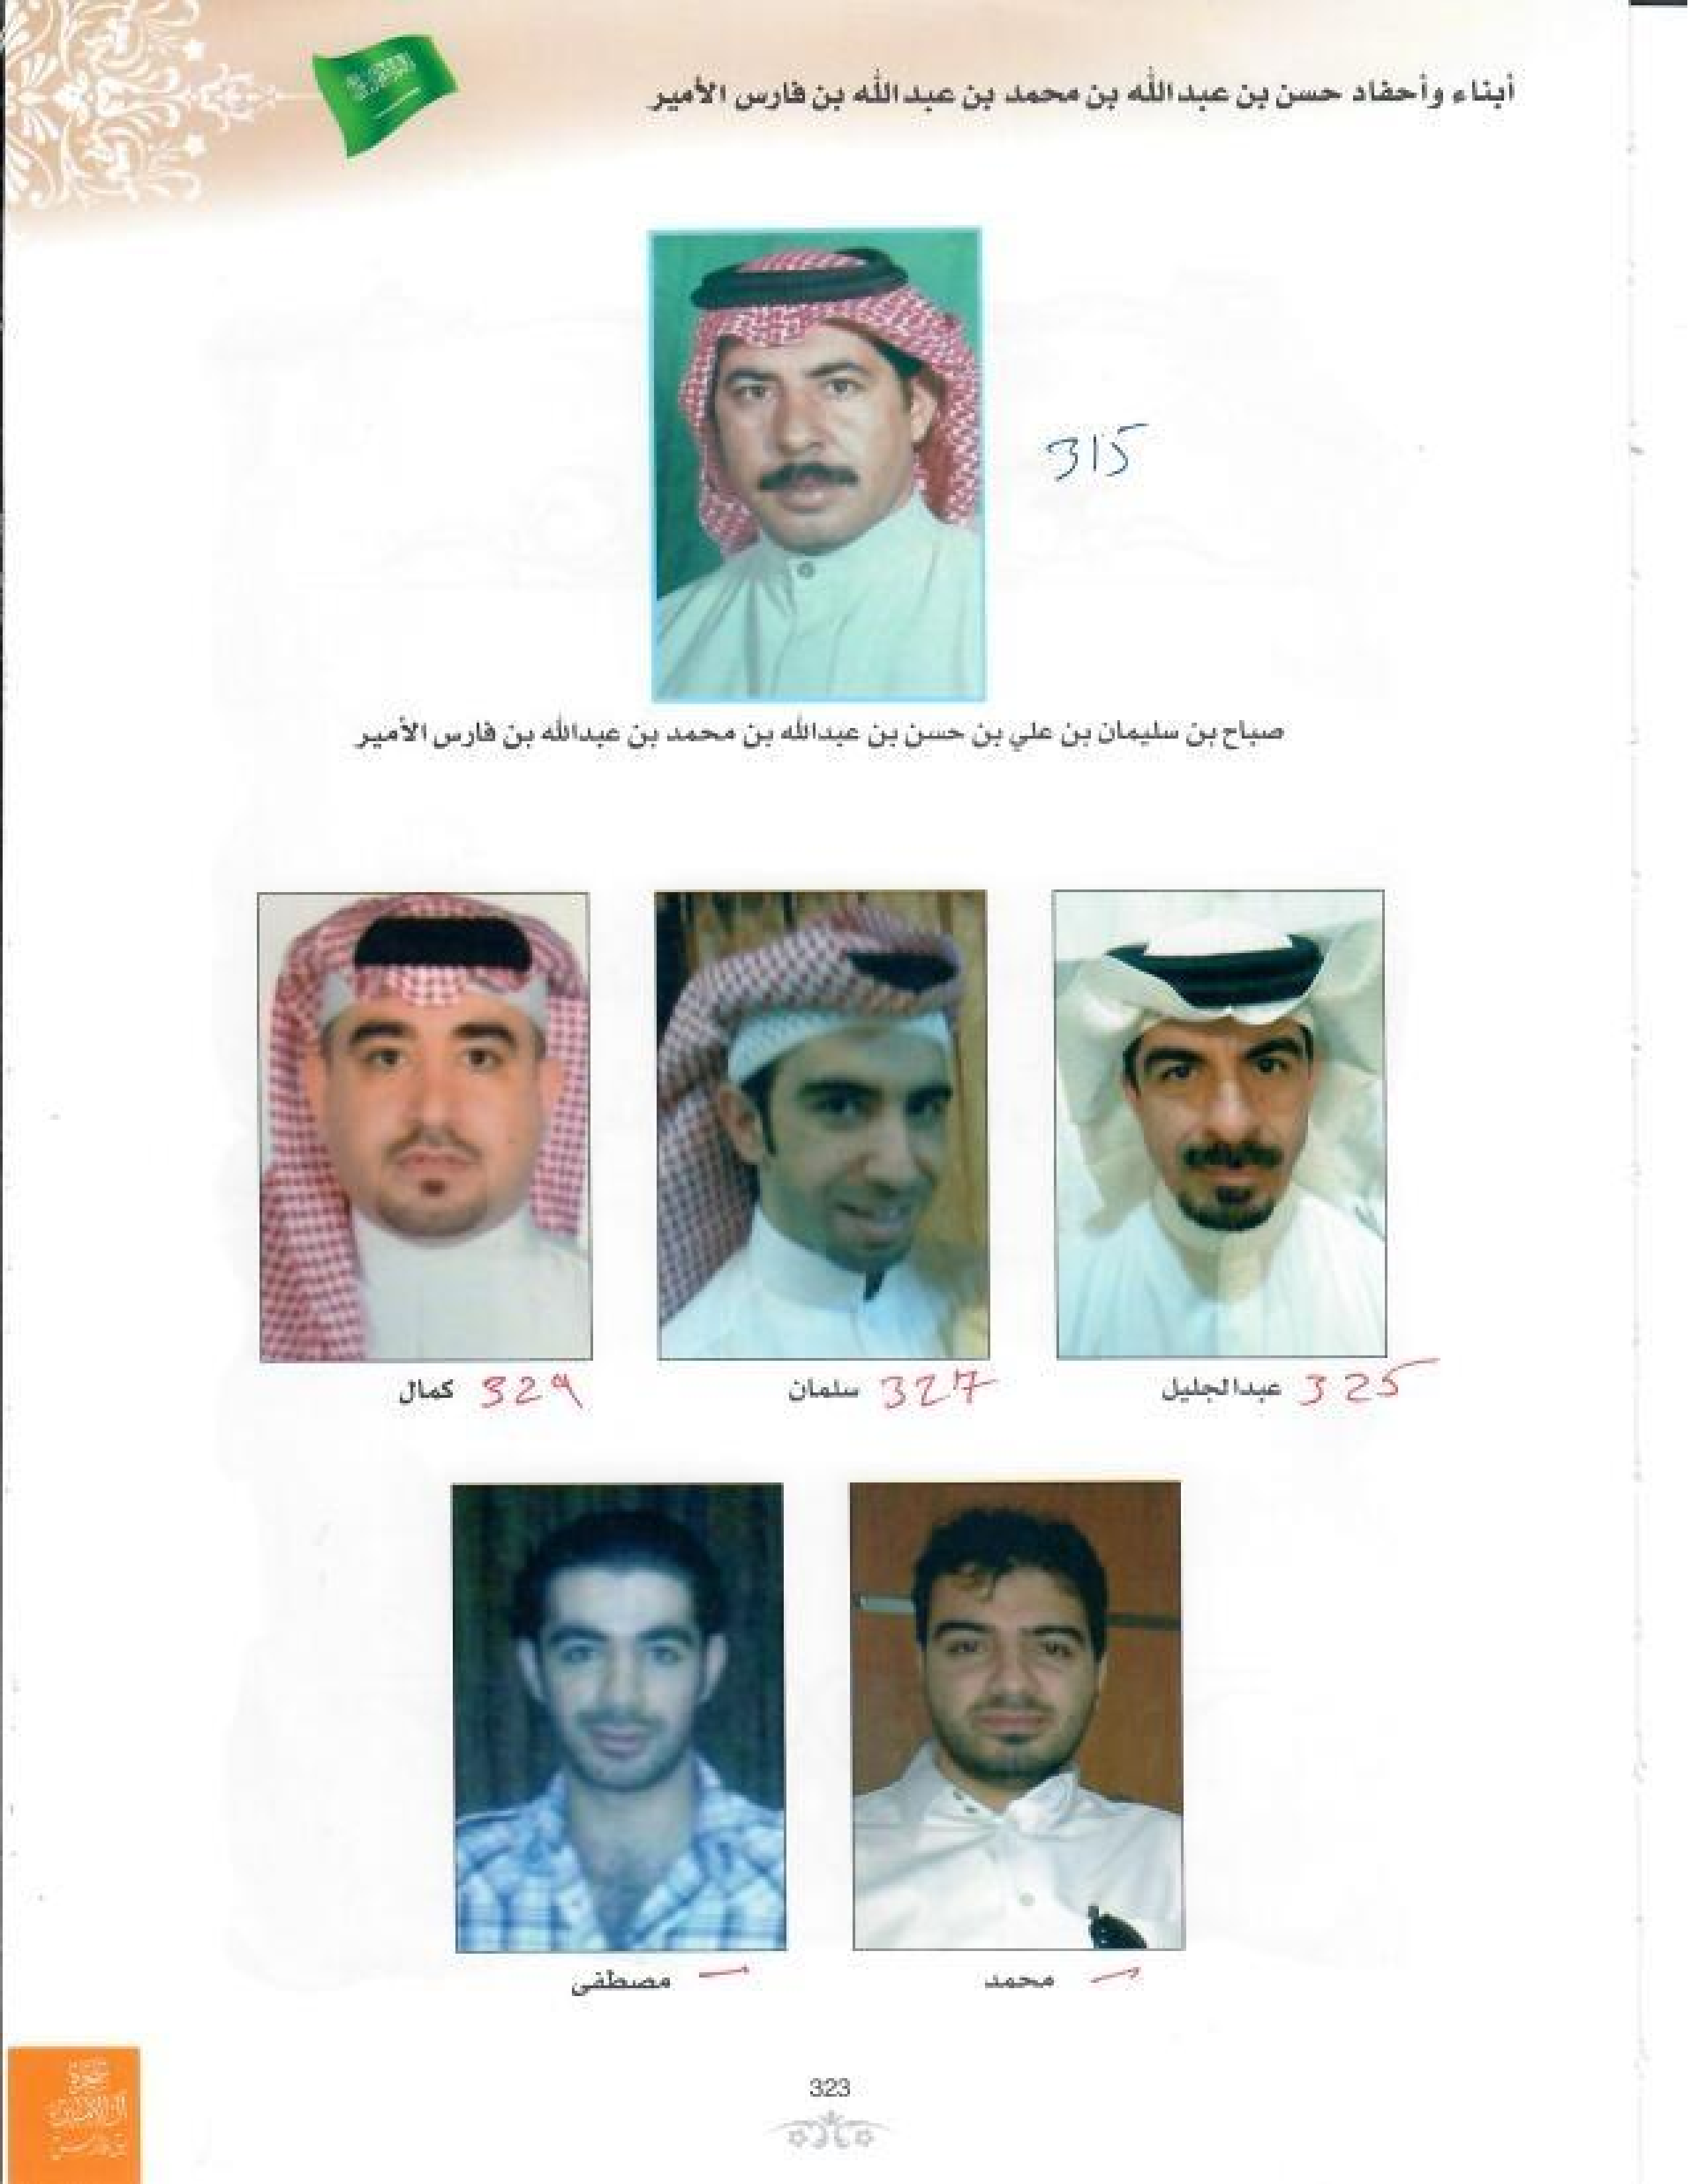 أبناء وأحفاد حسن بن عبدالله بن محمد بن عبدالله بن فارس الأمير
315
صباح بن سليمان بن علي بن حسن بن عبدالله بن محمد بن عبدالله بن فارس الأمير
عبدالجليل 325
سلمان 327
كمال 329
محمد
مصطفى
323
شجرة
آل الأمير
بن فارس